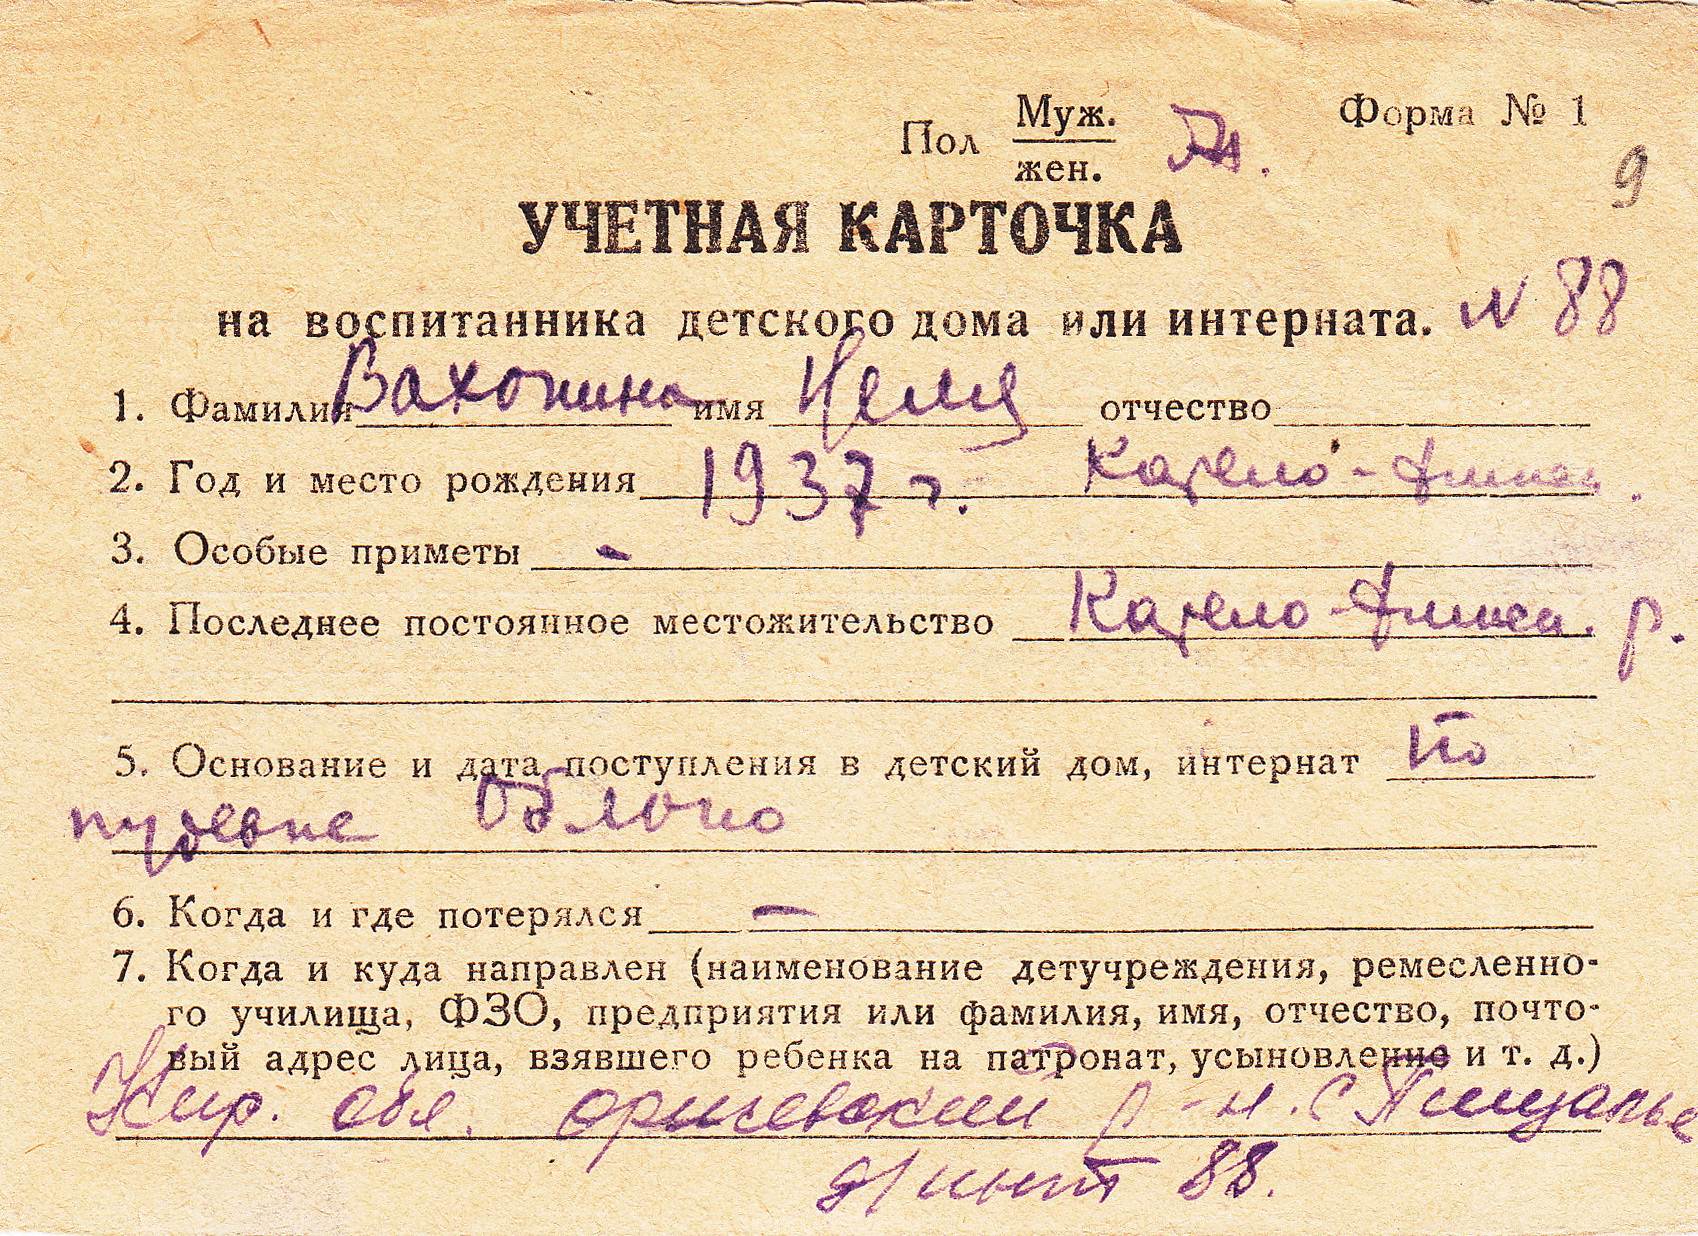 Пол Муж. жен. Д. Форма № 1
9
УЧЕТНАЯ КАРТОЧКА
на воспитанника детского дома или интерната. № 88
1. Фамилия Вахонина имя Неля отчество
2. Год и место рождения 1937 г. Карело-Финск.
3. Особые приметы -
4. Последнее постоянное местожительство Карело-Финск. р.
5. Основание и дата поступления в детский дом, интернат по
путевке Облоно
6. Когда и где потерялся —
7. Когда и куда направлен (наименование детучреждения, ремесленно-
го училища, ФЗО, предприятия или фамилия, имя, отчество, почто-
вый адрес лица, взявшего ребенка на патронат, усыновление и т. д.)
Кир. обл. оричевский р-н. с Пищалье
д/инт 88.